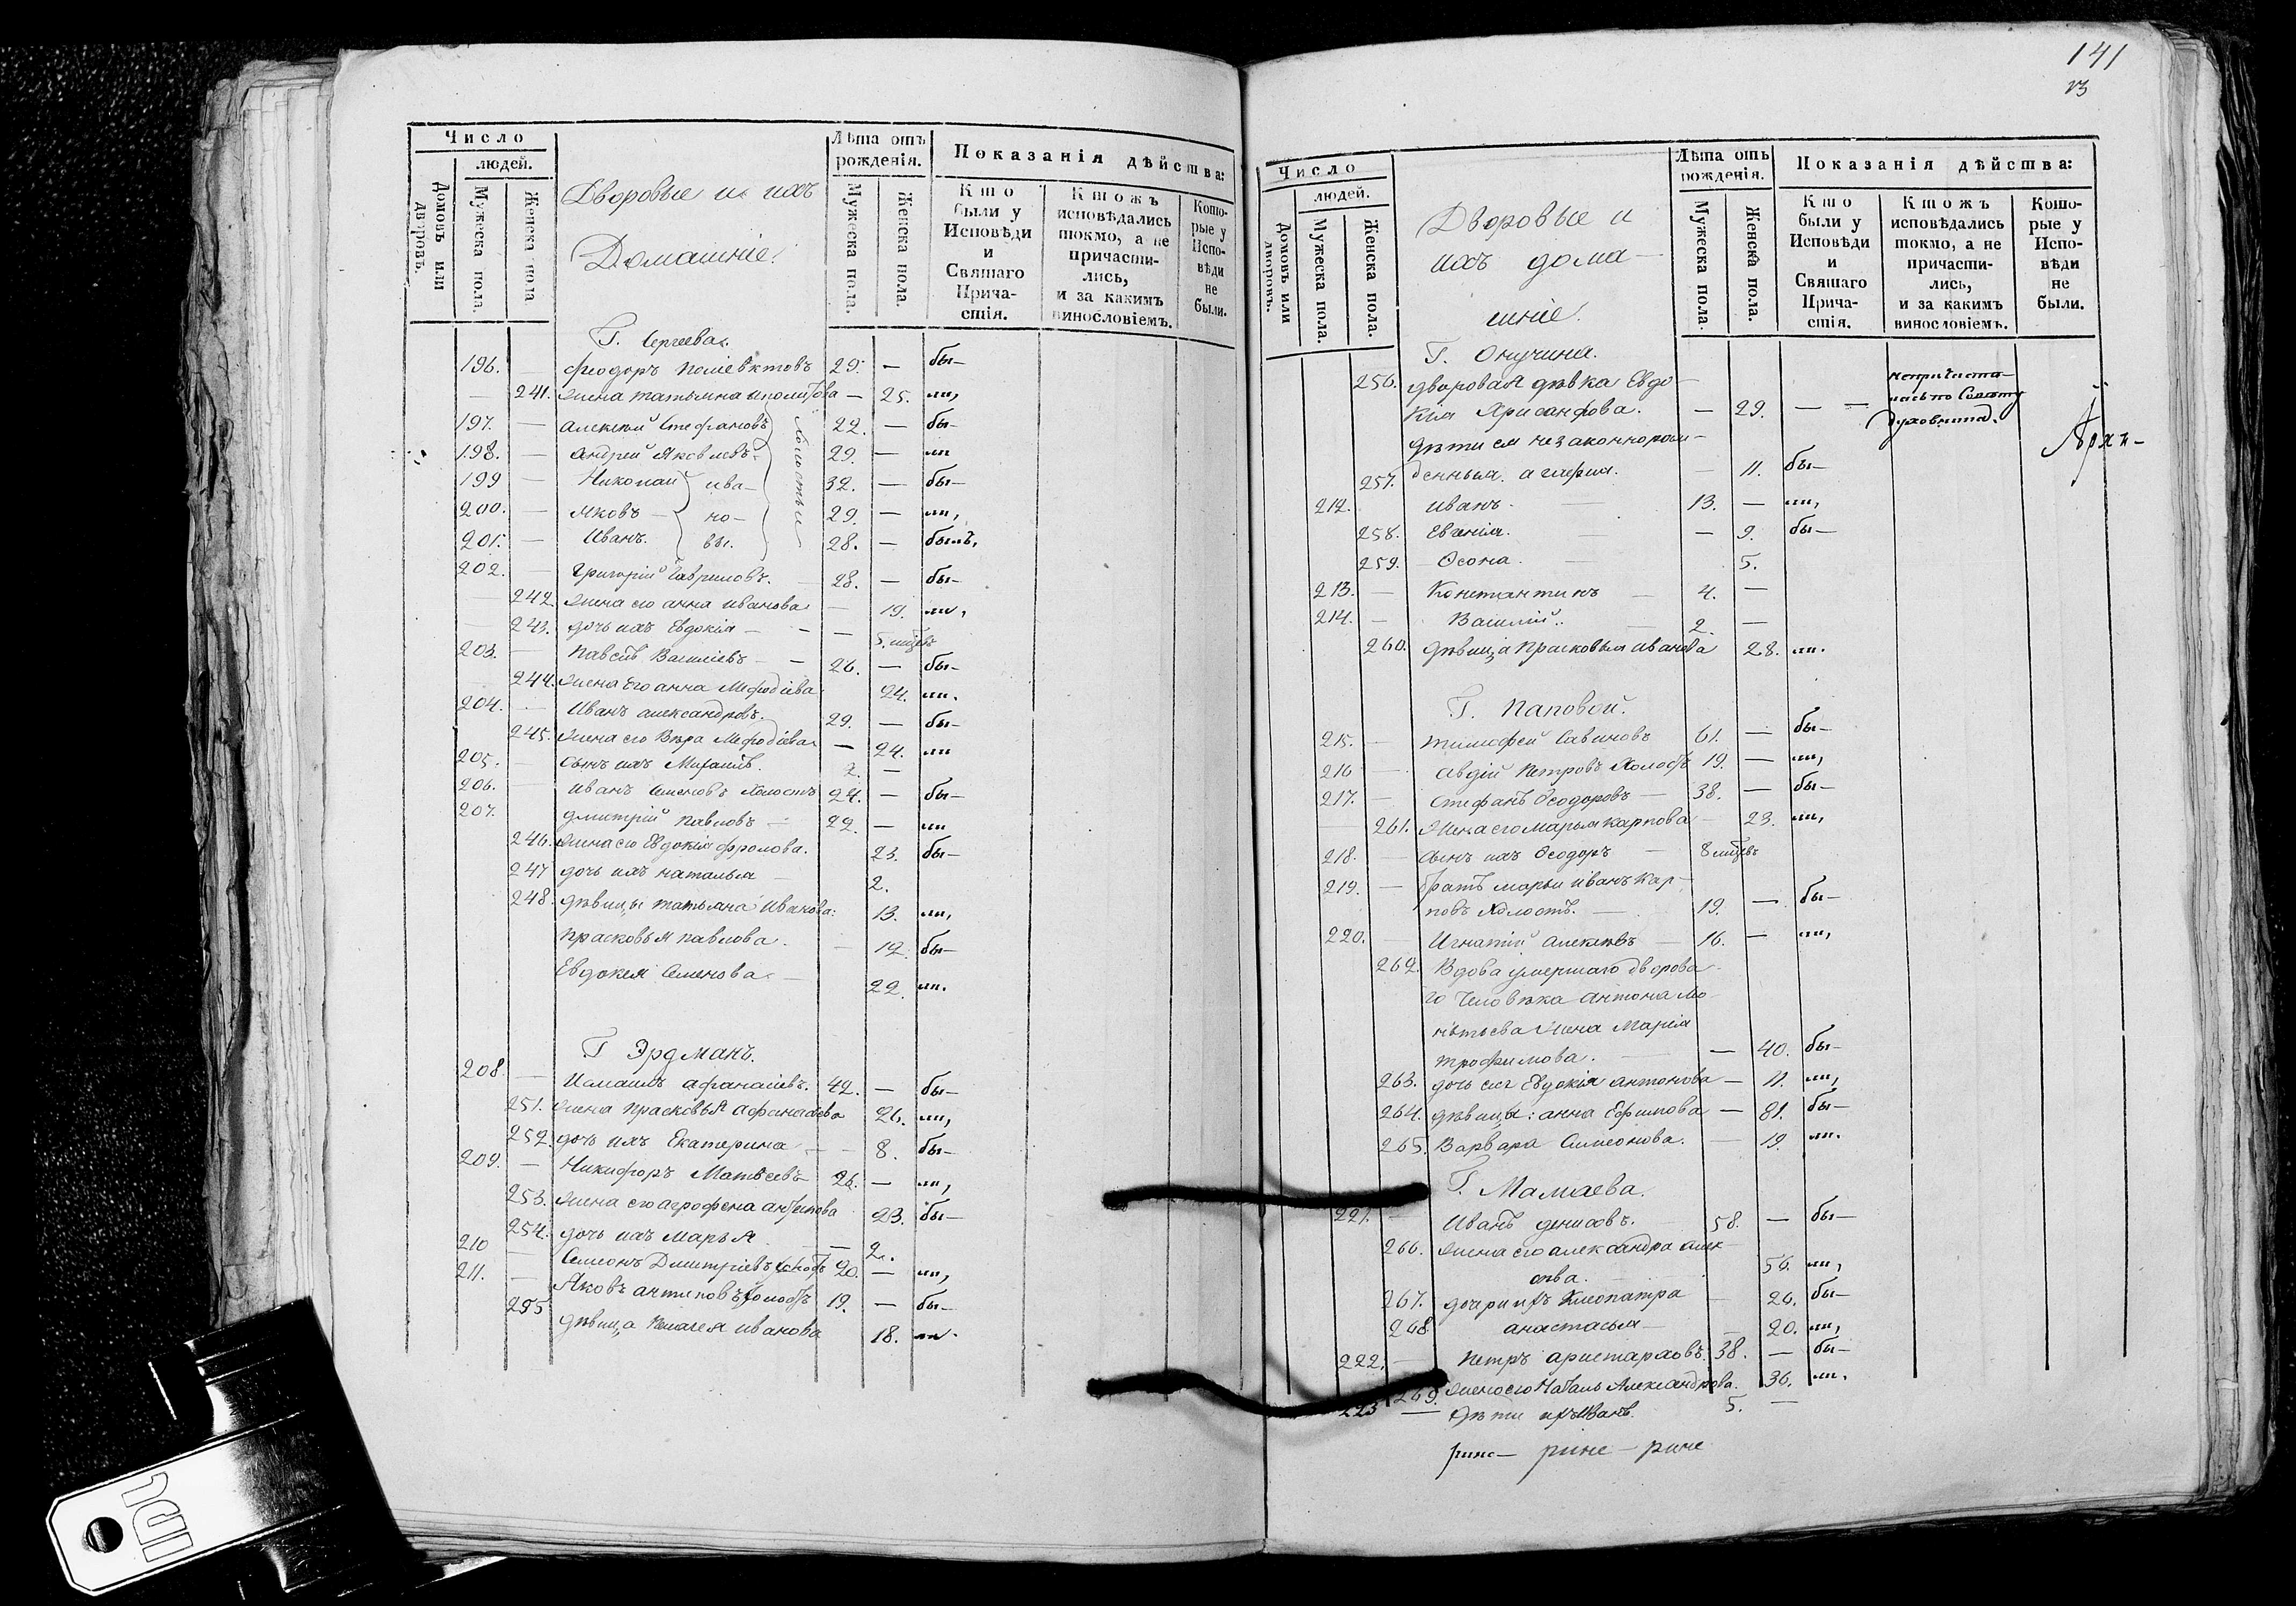 Число
людей.
Домовъ или дворовъ.
Мужеска пола.
Женска пола
Дворовые и ихъ
Домашніе.
Лѣта отъ рожденія.
Мужеска пола.
Женска пола.
Показанія дѣйства:
Кто были у Исповѣди и Святаго Причастія.
Ктожъ исповѣдались токмо, а не причастились, и за какимъ винословіемъ.
Которые у Исповѣди не были.
Г. Сергеева.
196. — Феодоръ Полиевктовъ 29. — бы—
— 241. Жена Татьяна Иполитова — 25. ли,
197. — Алексѣй Стефановъ 22. — бы—
198. — Андрей Яковлевъ 29. — ли
199 — Николай ива— 32. — бы—
200. — Яковъ — но— 29. — ли,
201. — Иванъ. вы. 28. — былъ,
холостыи
202. — Григорій Гавриловъ. 28. — бы—
242. Жена его Анна Иванова — 19. ли,
243. дочь ихъ Евдокія — — 5. мцевъ
203. — Павелъ Василіевъ — 26. — бы—
244. Жена его Анна Мефодіева 24. ли.
204. — Иванъ Александровъ. 29. — бы—
245. Жена его Вѣра Мефодіева — 24. ли
205. — Сынъ ихъ Михаилъ. 2. —
206. — Иванъ Семеновъ Холостъ 24. — бы—
207. Дмитрій Павловъ — 22. — ли
246. Жена его Евдокія Фролова. 23. бы—
247 дочь ихъ Наталья — 2.
248. дѣвицы Татьяна Иванова: 13. ли,
Прасковья Павлова. — 12. бы—
Евдокея Семенова — 22. ли.
Г Эрдманъ.
208 — Афанасіевъ. 42. — бы—
251. Жена Прасковья Афанасіева 26. ли,
252. дочь ихъ Екатерина — 8. бы—
209. — Никифоръ Матвѣевъ 26. — ли,
253. Жена его Агрофена Антипова 23. бы—
254. дочь ихъ Марья — 2.
210 — Симеонъ Дмитріевъ холостъ 20. — ли,
211. — Яковъ Антиповъ холостъ 19. — бы—
255 дѣвица Пелагея Иванова 18. ли.
141
Число
людей.
Домовъ или дворовъ.
Мужеска пола.
Женска пола.
Дворовые и
ихъ дома—
шніе.
Лѣта отъ рожденія.
Мужеска пола.
Женска пола.
Показанія дѣйства:
Кто были у Исповѣди и Святаго Причастія.
Ктожъ исповѣдались токмо, а не причастились, и за какимъ винословіемъ.
Которые у Исповѣди не были.
Г. Онучина.
256. дворовая дѣвка Евдо—
кія Хрисанфова. — 29. — —
непричаща—
лась по Совѣту
духовника.
дѣти ея незаконнорож—
257. денныя. Аглафия. — 11. бы—
212. Иванъ. 13. — ли,
258. Евгенія. — 9. бы—
259. — Ѳеона. 5.
213. — Константинъ — 4. —
214. — Василій. 2. —
260. дѣвица Прасковья Иванова 28. ли.
Г. Паповой.
215. — Тимофей Савиновъ 61. — бы—
216 — Авдій Петровъ Холостъ 19. — ли,
217. — Стефанъ Ѳеодоровъ — 38. — бы—
261. Жена его Марья Карпова — 23. ли,
218. — Сынъ ихъ Ѳеодоръ — 8 мцевъ
219. — братъ Марьи Иванъ Кар—
повъ Холостъ. — 19. — бы—
220. — Игнатій Алексѣевъ — 16. — ли,
262. Вдова умершаго дворова—
го человѣка Антона
Жена Марія
Трофимова. — 40. бы—
263. дочь ея Евдокія Антонова — 11. ли,
264. дѣвицы: Анна Ефимова — 81. бы—
265. Варвара Симеонова. — 19. ли.
Г. Мамаева.
221. — Иванъ Денисовъ. 58. — бы—
266. Жена его Александра Алек—
ѣева. 56. ли,
267. дочери ихъ Клеопатра — 26. бы—
268 Анастасья — — 20. ли,
222. — Петръ Аристарховъ. 38. — бы—
269. Жена его Наталья Александрова. 36. ли.
223 — Дѣти ихъ Иванъ. 5. —